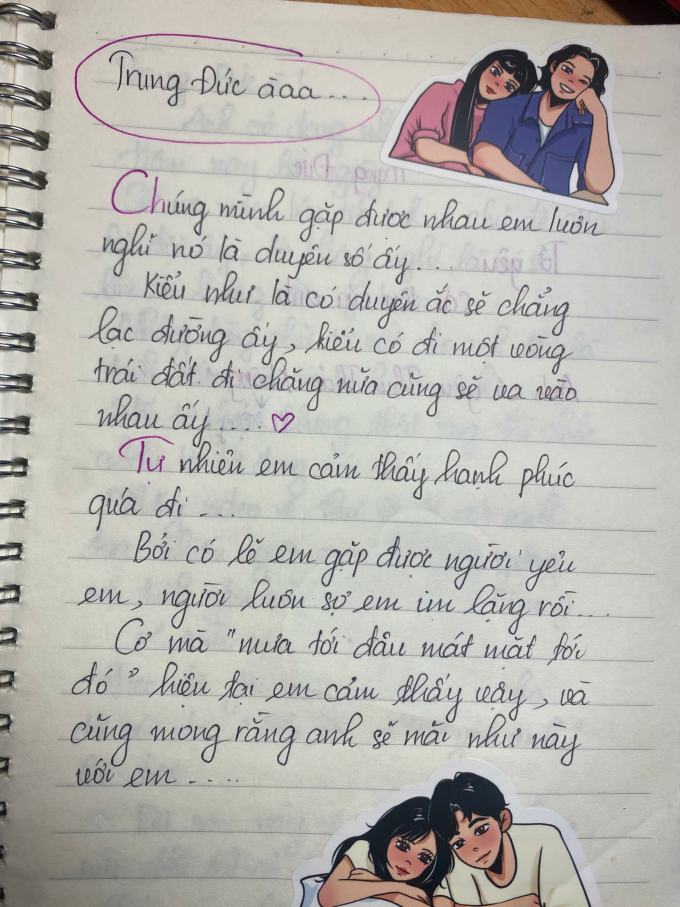 Trung Đức ãaa....
Chúng mình gặp được nhau em luôn
nghĩ nó là duyên số ấy....
Kiểu như là có duyên ắc sẽ chẳng
lạc đường ấy, kiểu có đi một vòng
trái đất đi chăng nữa cũng sẽ va vào
nhau ấy.... ♡
Tự nhiên em cảm thấy hạnh phúc
quá đi....
Bởi có lẽ em gặp được người yêu
em, người luôn sợ em im lặng rồi....
Cơ mà "mưa tới đâu mát mặt tới
đó" hiện tại em cảm thấy vậy, và
cũng mong rằng anh sẽ mãi như này
với em.....